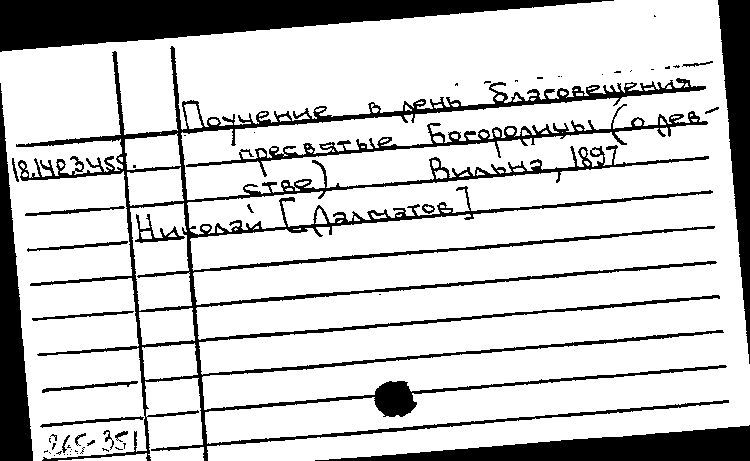 Поучение в день благовещения
18.142.3.455. пресвятые Богородицы (о дев-
стве). Вильна, 1897.
Николай [Далматов]
265-351